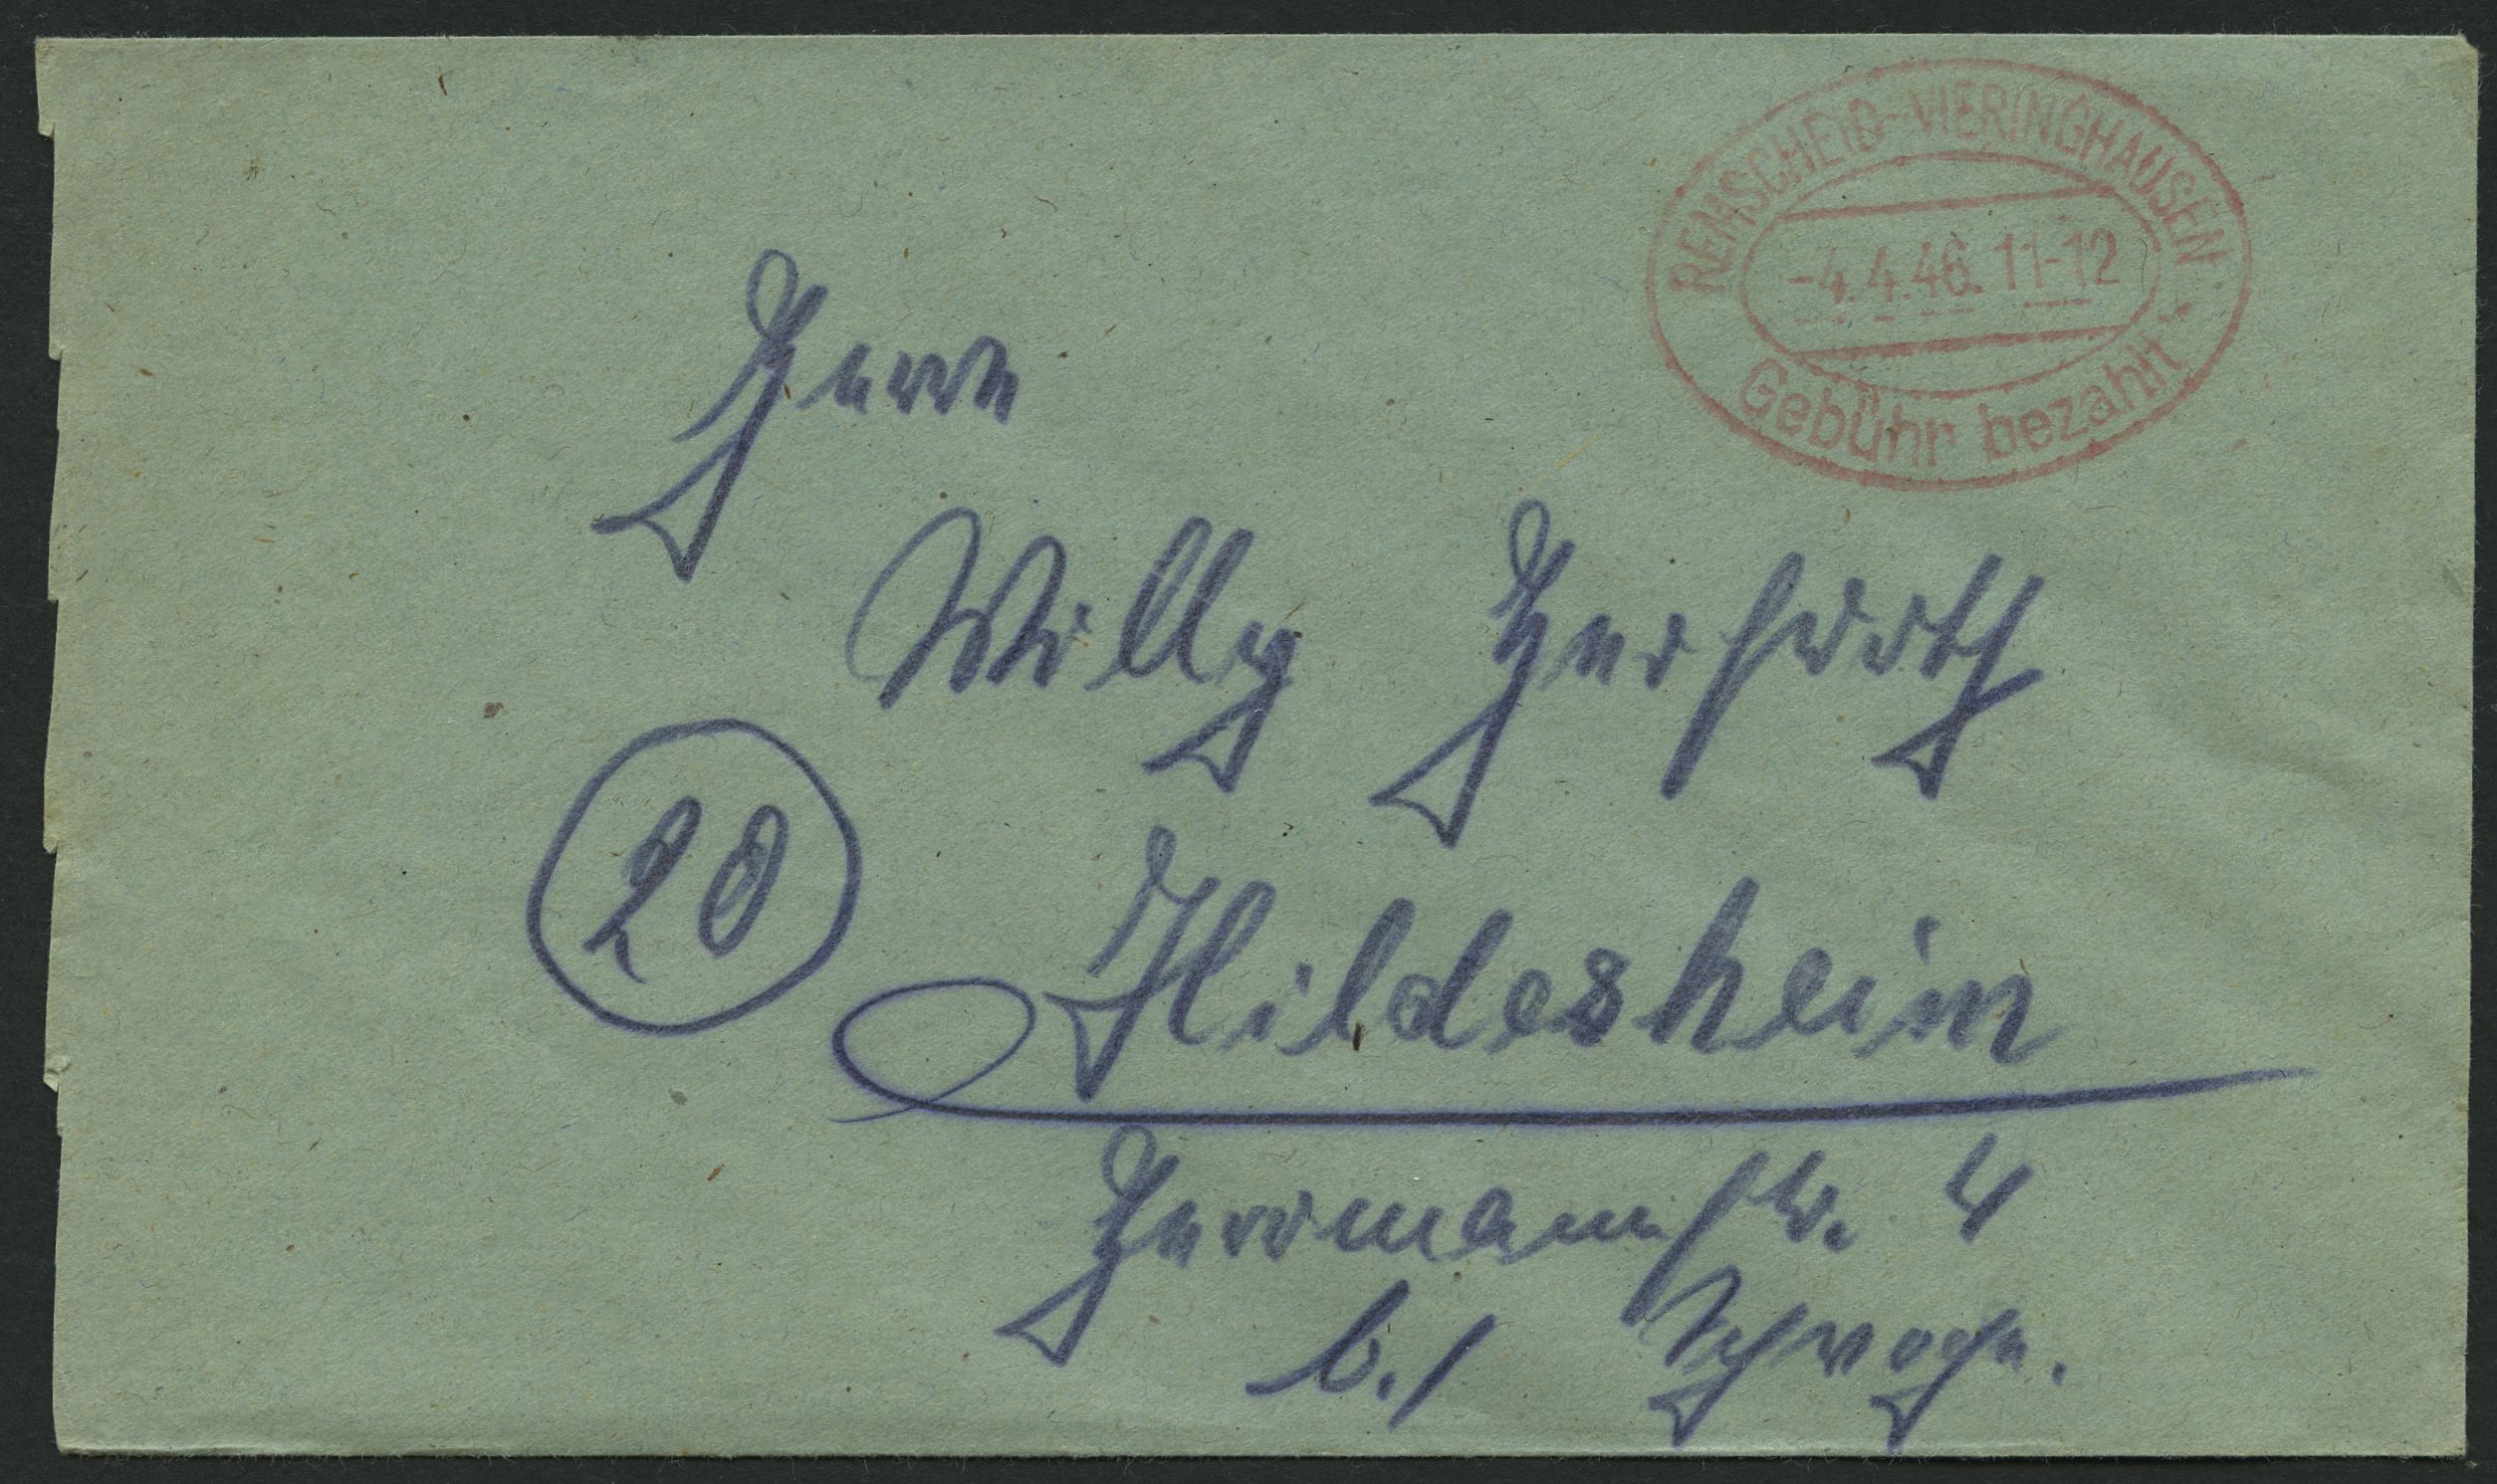 REMSCHEID-VIERINGHAUSEN
-4.4.46. 11-12
Gebühr bezahlt
Herrn
Willy Herfurth
20 Hildesheim
Herrmannstr. 4
b./